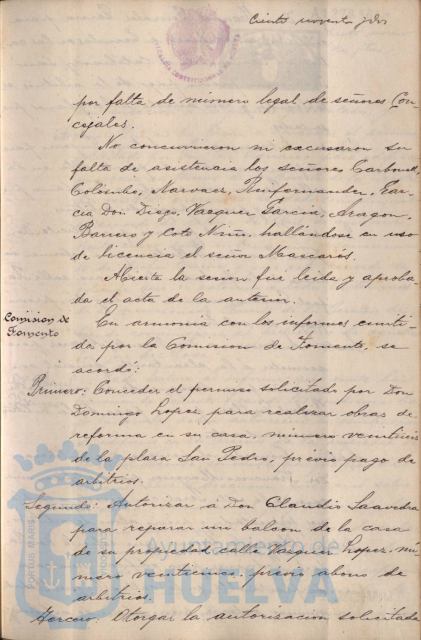 Ciento noventa y dos
ALCALDIA CONSTITUCIONAL DE HUELVA
por falta de número legal de señores Con-
cejales.
No concurrieron ni excusaron su
falta de asistencia los señores Carbonell,
Colombo, Narvaez, Rinfernandez, Gar-
cia Don Diego, Vazquez Garcia, Aragon,
Barrero y Coto Niño, hallándose en uso
de licencia el señor Mascarós.
Abierta la sesion fué leida y aproba-
da el acta de la anterior.
Comision de
Fomento
En armonia con los informes emiti-
dos por la Comision de Fomento, se
acordó:
Primero: Conceder el permiso solicitado por Don
Domingo Lopez para realizar obras de
reforma en su casa, número veintiseis
de la plaza San Pedro, previo pago de
arbitrios.
Segundo: Autorizar a Don Claudio Saavedra
para reparar un balcon de la casa
de su propiedad calle Vazquez Lopez nú-
mero veintiuno previo abono de
arbitrios.
Tercero: Otorgar la autorizacion solicitada
Ayuntamiento de
HUELVA